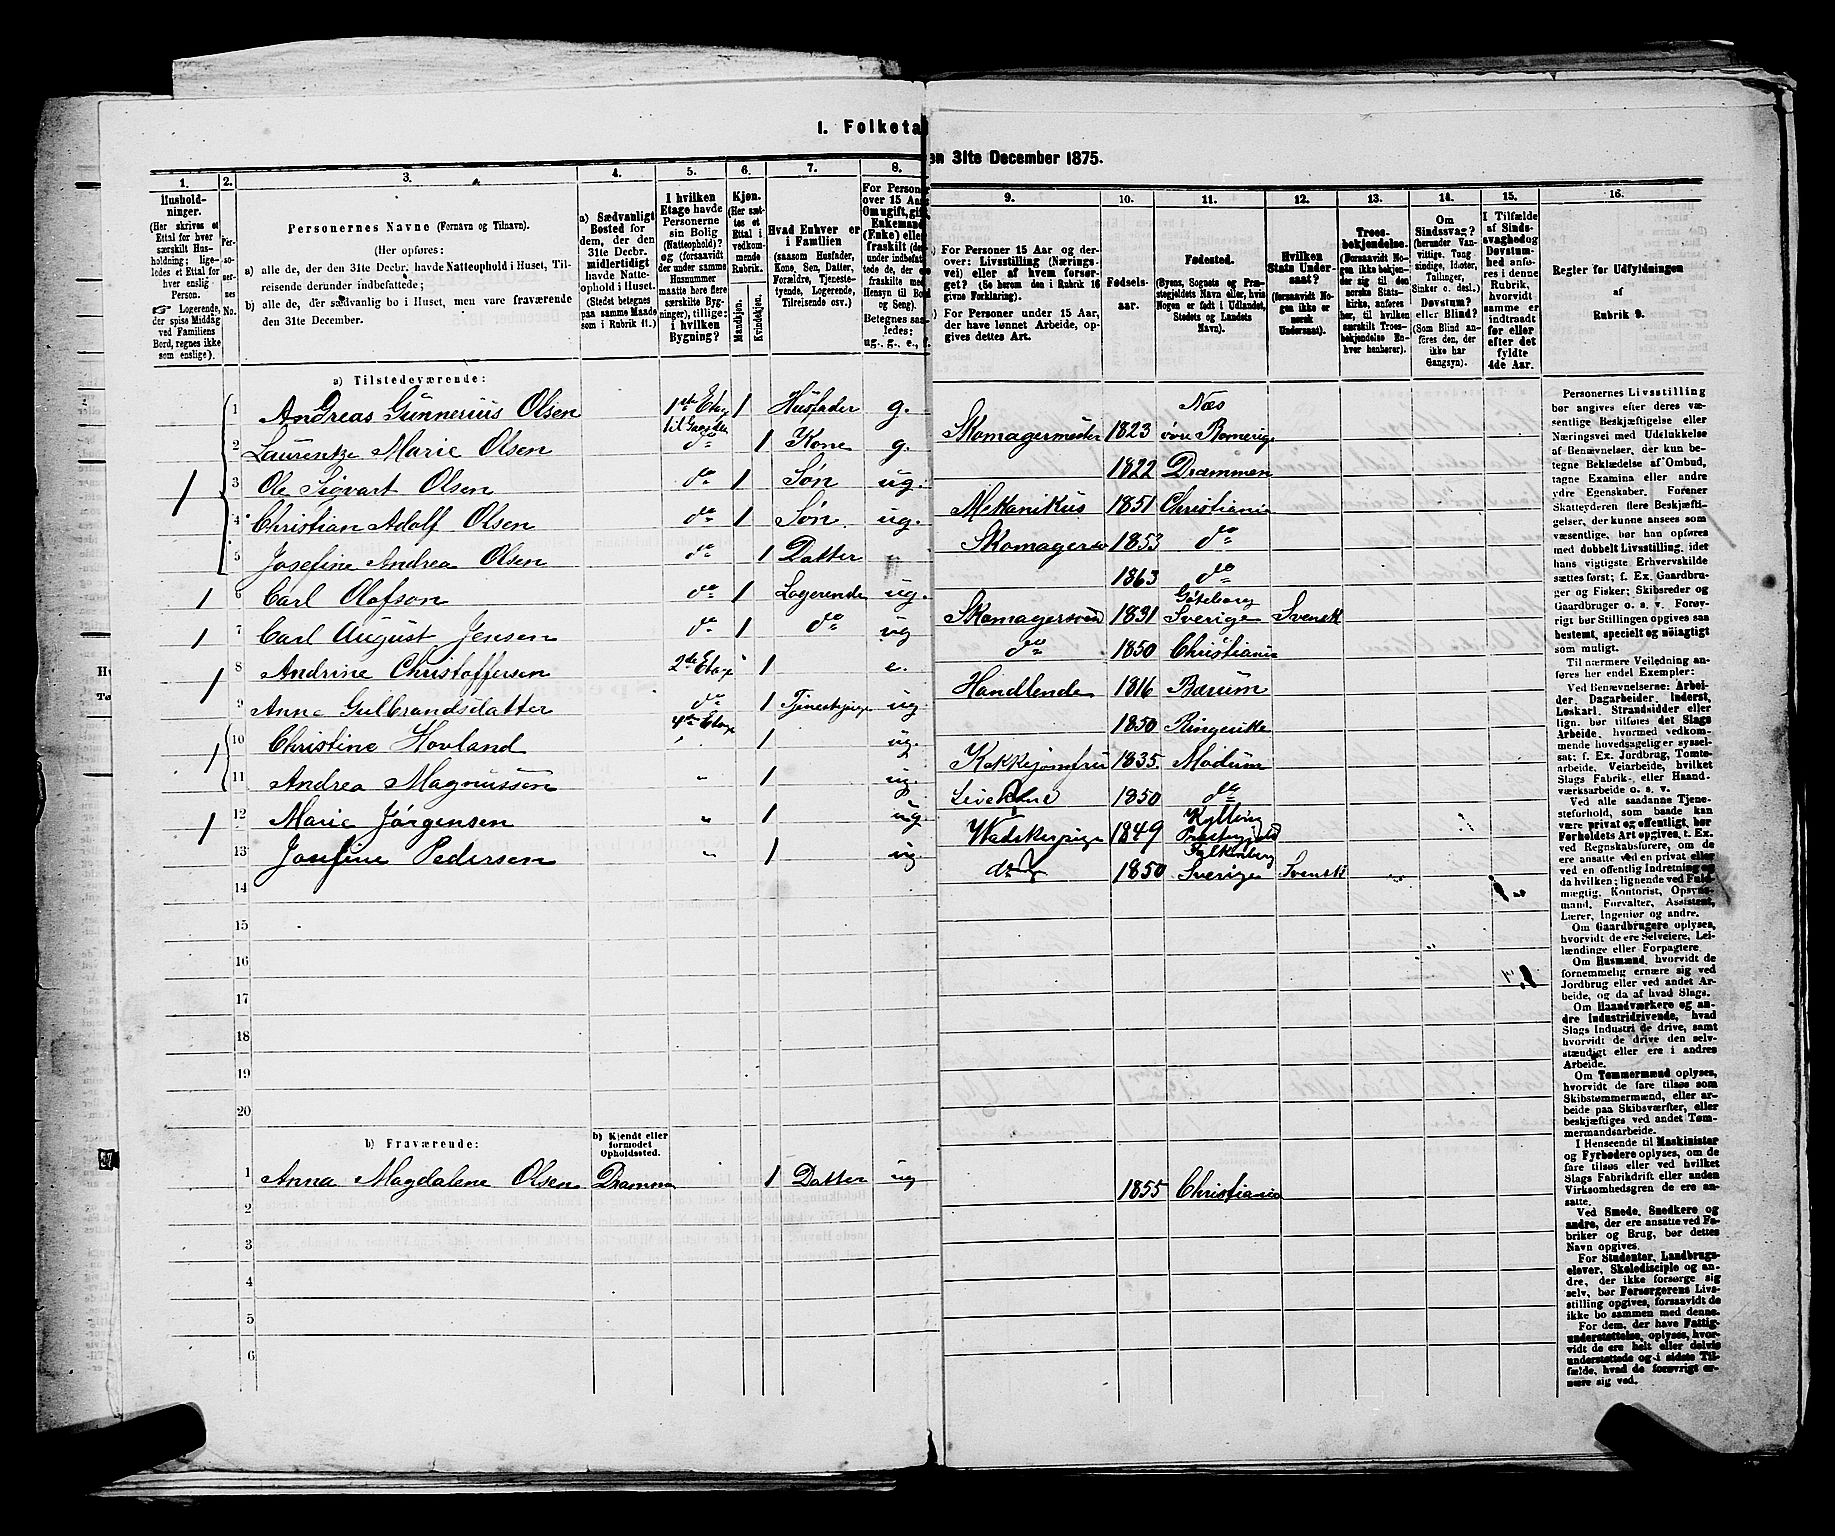 I. Folketa
en 31te December 1875.
1. 2. 3. 4. 5. 6. 7. 8. 9. 10. 11. 12. 13. 14. 15. 16.
Husholdninger.
(Her skrives et Ettal for hver særskilt Husholdning; ligeledes et Ettal for hver enslig Person.
☞ Logerende, der spise Middag ved Familiens Bord, regnes ikke som enslige).
Personernes No.
Personernes Navne (Fornavn og Tilnavn).
(Her opføres:
a) alle de, der den 31te Decbr. havde Natteophold i Huset, Tilreisende derunder indbefattede;
b) alle de, der sædvanlig bo i Huset, men vare fraværende den 31te December.
a) Sædvanligt Bosted for dem, der den 31te Decbr. midlertidigt havde Natteophold i Huset.
(Stedet betegnes paa samme Maade som i Rubrik 11.)
I hvilken Etage havde Personerne sin Bolig (Natteophold)? og (forsaavidt der under samme Husnummer maatte høre flere særskilte Bygninger), tillige: i hvilken Bygning?
Kjøn.
(Her sættes et Ettal i vedkommende Rubrik.
Mandkjøn. Kvindekjøn.
Hvad Enhver er i Familien
(saasom Husfader, Kone, Søn, Datter, Forældre, Tjenestetyende, Logerende, Tilreisende osv.)
For Personer over 15 Aar: Om ugift, gift, Enkemand (Enke) eller fraskilt
Betegnes saaledes: ug., g., e., f.
For Personer 15 Aar og derover: Livsstilling (Næringsvei) eller af hvem forsørget? (Se herom den i Rubrik 16 givne Forklaring).
For Personer under 15 Aar, der have lønnet Arbeide, opgives dettes Art.
Fødselsaar.
Fødested.
(Byens, Sognets og Præstegjeldets Navn eller, hvis Nogen er født i Udlandet, Stedets og Landets Navn).
Hvilken Stats Undersaat?
(forsaavidt Nogen ikke er norsk Undersaat).
Troesbekjendelse.
(Forsaavidt Nogen ikke bekjender sig til den norske Statskirke, anføres her, til hvilken særskilt Troesbekjendelse Enhver henhører).
Om Sindssvag?
(herunder Vanvittige, Tungsindige, Idioter, Tullinger, Sinker o. desl.)
Døvstum? eller Blind?
(Som Blind anføres den, der ikke har Gangsyn).
I Tilfælde af Sindssvaghed og Døvstumhed anføres i denne Rubrik, hvorvidt samme er indtraadt før eller efter det fyldte 4de Aar.
Regler for Udfyldningen
af
Rubrik 9.
a) Tilstedeværende:
1 Andreas Gunnerius Olsen 1ste Etag til Gaarden 1 Husfader g. Skomagermester 1823 Næs övre Romerige
2 Laurentze Marie Olsen do 1 Kone g. 1822 Drammen
1 3 Ole Sigvart Olsen do 1 Søn ug. Mekanikus 1851 Christiania
4 Christian Adolf Olsen do 1 Søn ug. 1853 do
5 Josefine Andrea Olsen do 1 Datter 1863 do
1 6 Carl Olafson do 1 Logerende ug. Skomagersvend 1831 Göteborg Sverige Svensk
1 7 Carl August Jensen do 1 do ug do 1850 Christiania
1 8 Andrine Christoffersen 2de Etage 1 e. Handlende 1816 Bærum
9 Anna Gulbrandsdatter do 1 Tjenestepige ug 1850 Ringerike
1 10 Christine Hovland 4de Etage 1 ug. 1835 Modum
11 Andrea Magnussen " 1 ug. 1850 do
1 12 Marie Jørgensen " 1 ug. Vadskerpige 1849
13 Josefine Pedersen " 1 ug do 1850 Falkenberg Sverige Svensk
14
15
16
17
18
19
20
b) Fraværende:
b) Kjendt eller formodet Opholdssted.
1 Anna Magdalene Olsen Drammen 1 Datter ug 1855 Christiania
2
3
4
5
6
Personernes Livsstilling bør angives efter deres væsentlige Beskjæftigelse eller Næringsvei med Udelukkelse af Benævnelser, der kun betegne Beklædelse af Ombud, tagne Examina eller andre ydre Egenskaber. Forener Skatteyderen flere Beskjæftigelser, der kunne ansees som væsentlige, bør han opføres med dobbelt Livsstilling, idet hans vigtigste Erhvervskilde sættes først; f. Ex. Gaardbruger og Fisker; Skibsreder og Gaardbruger o. s. v. Forøvrigt bør Stillingen opgives saa bestemt, specielt og nøiagtigt som muligt.
Til nærmere Veiledning anføres her endel Exempler:
Ved Benævnelserne: Arbeider, Dagarbeider, Inderst, Løskarl, Strandsidder eller lign. bør tilføies det Slags Arbeide, hvormed vedkommende hovedsagelig er sysselsat; f. Ex. Jordbrug, Tomtearbeide, Veiarbeide, hvilket Slags Fabrik- eller Haandværksarbeide o. s. v.
Ved alle saadanne Tjenesteforhold, som baade kan være privat og offentligt, bør Forholdets Art opgives, t. Ex. ved Regnskabsførere, om de ere ansatte ved en privat eller ved en offentlig Indretning og da hvilken; lignende ved Fuldmægtig, Kontorist, Opsynsmand, Forvalter, Assistent, Lærer, Ingeniør og andre.
Om Gaardbrugere oplyses, hvorvidt de ere Selveiere, Leilændinge eller Forpagtere.
Om Husmænd, hvorvidt de fornemmelig ernære sig ved Jordbrug eller ved andet Arbeide, og da af hvad Slags.
Om Haandværkere og andre Industridrivende, hvad Slags Industri de drive, samt hvorvidt de drive den selvstændigt eller ere i andres Arbeide.
Om Tømmermænd oplyses, hvorvidt de fare tilsøs som Skibstømmermænd, eller arbeide paa Skibsværfter, eller beskjæftiges ved andet Tømmermandsarbeide.
I Henseende til Maskinister og Fyrbødere oplyses, om de fare tilsøs eller ved hvilket Slags Fabrikdrift eller anden Virksomhedsgren de ere ansatte.
Ved Smede, Snedkere og andre, der ere ansatte ved Fabriker og Brug, bør dettes Navn opgives.
For Studenter, Landbrugselever, Skoledisciple og andre, der ikke forsørge sig selv, bør Forsørgerens Livsstilling opgives, forsaavidt de ikke bo sammen med denne.
For dem, der have Fattigunderstøttelse, oplyses, hvorvidt de ere helt eller delvis understøttede og i sidste Tilfælde, hvad de forøvrigt ernære sig ved.